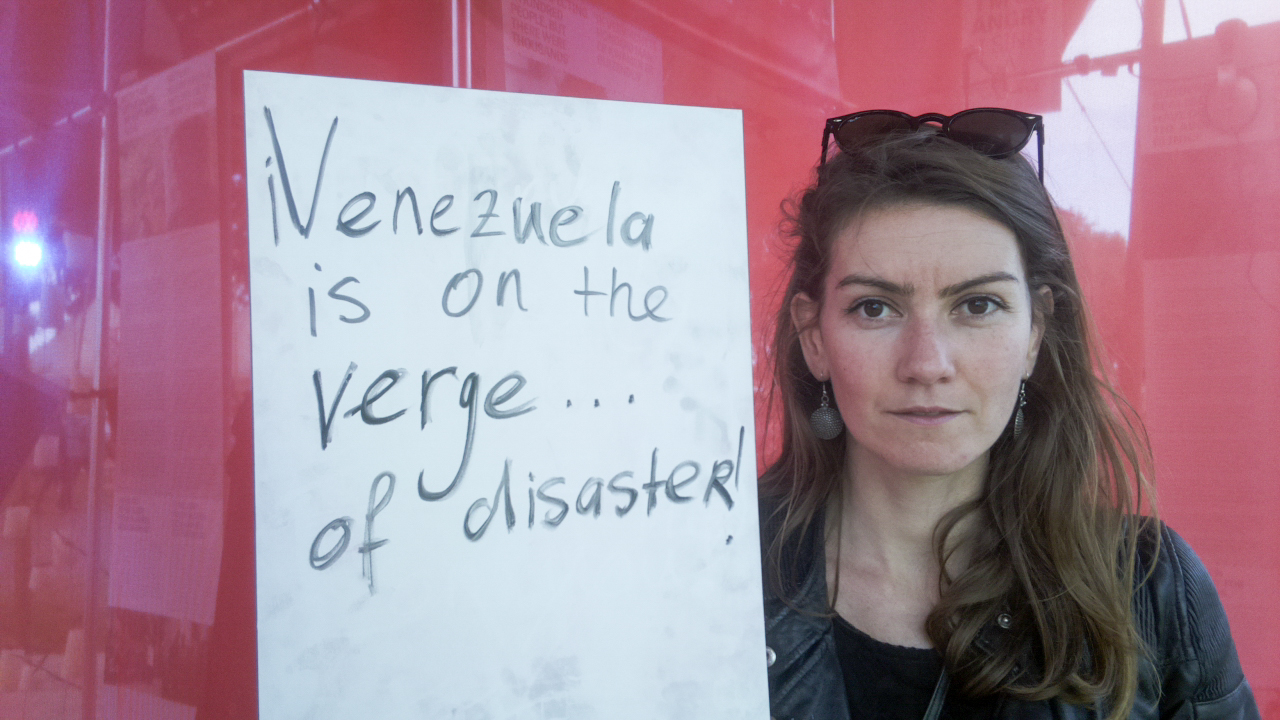 ¡Venezuela
is on the
verge...
of disaster!